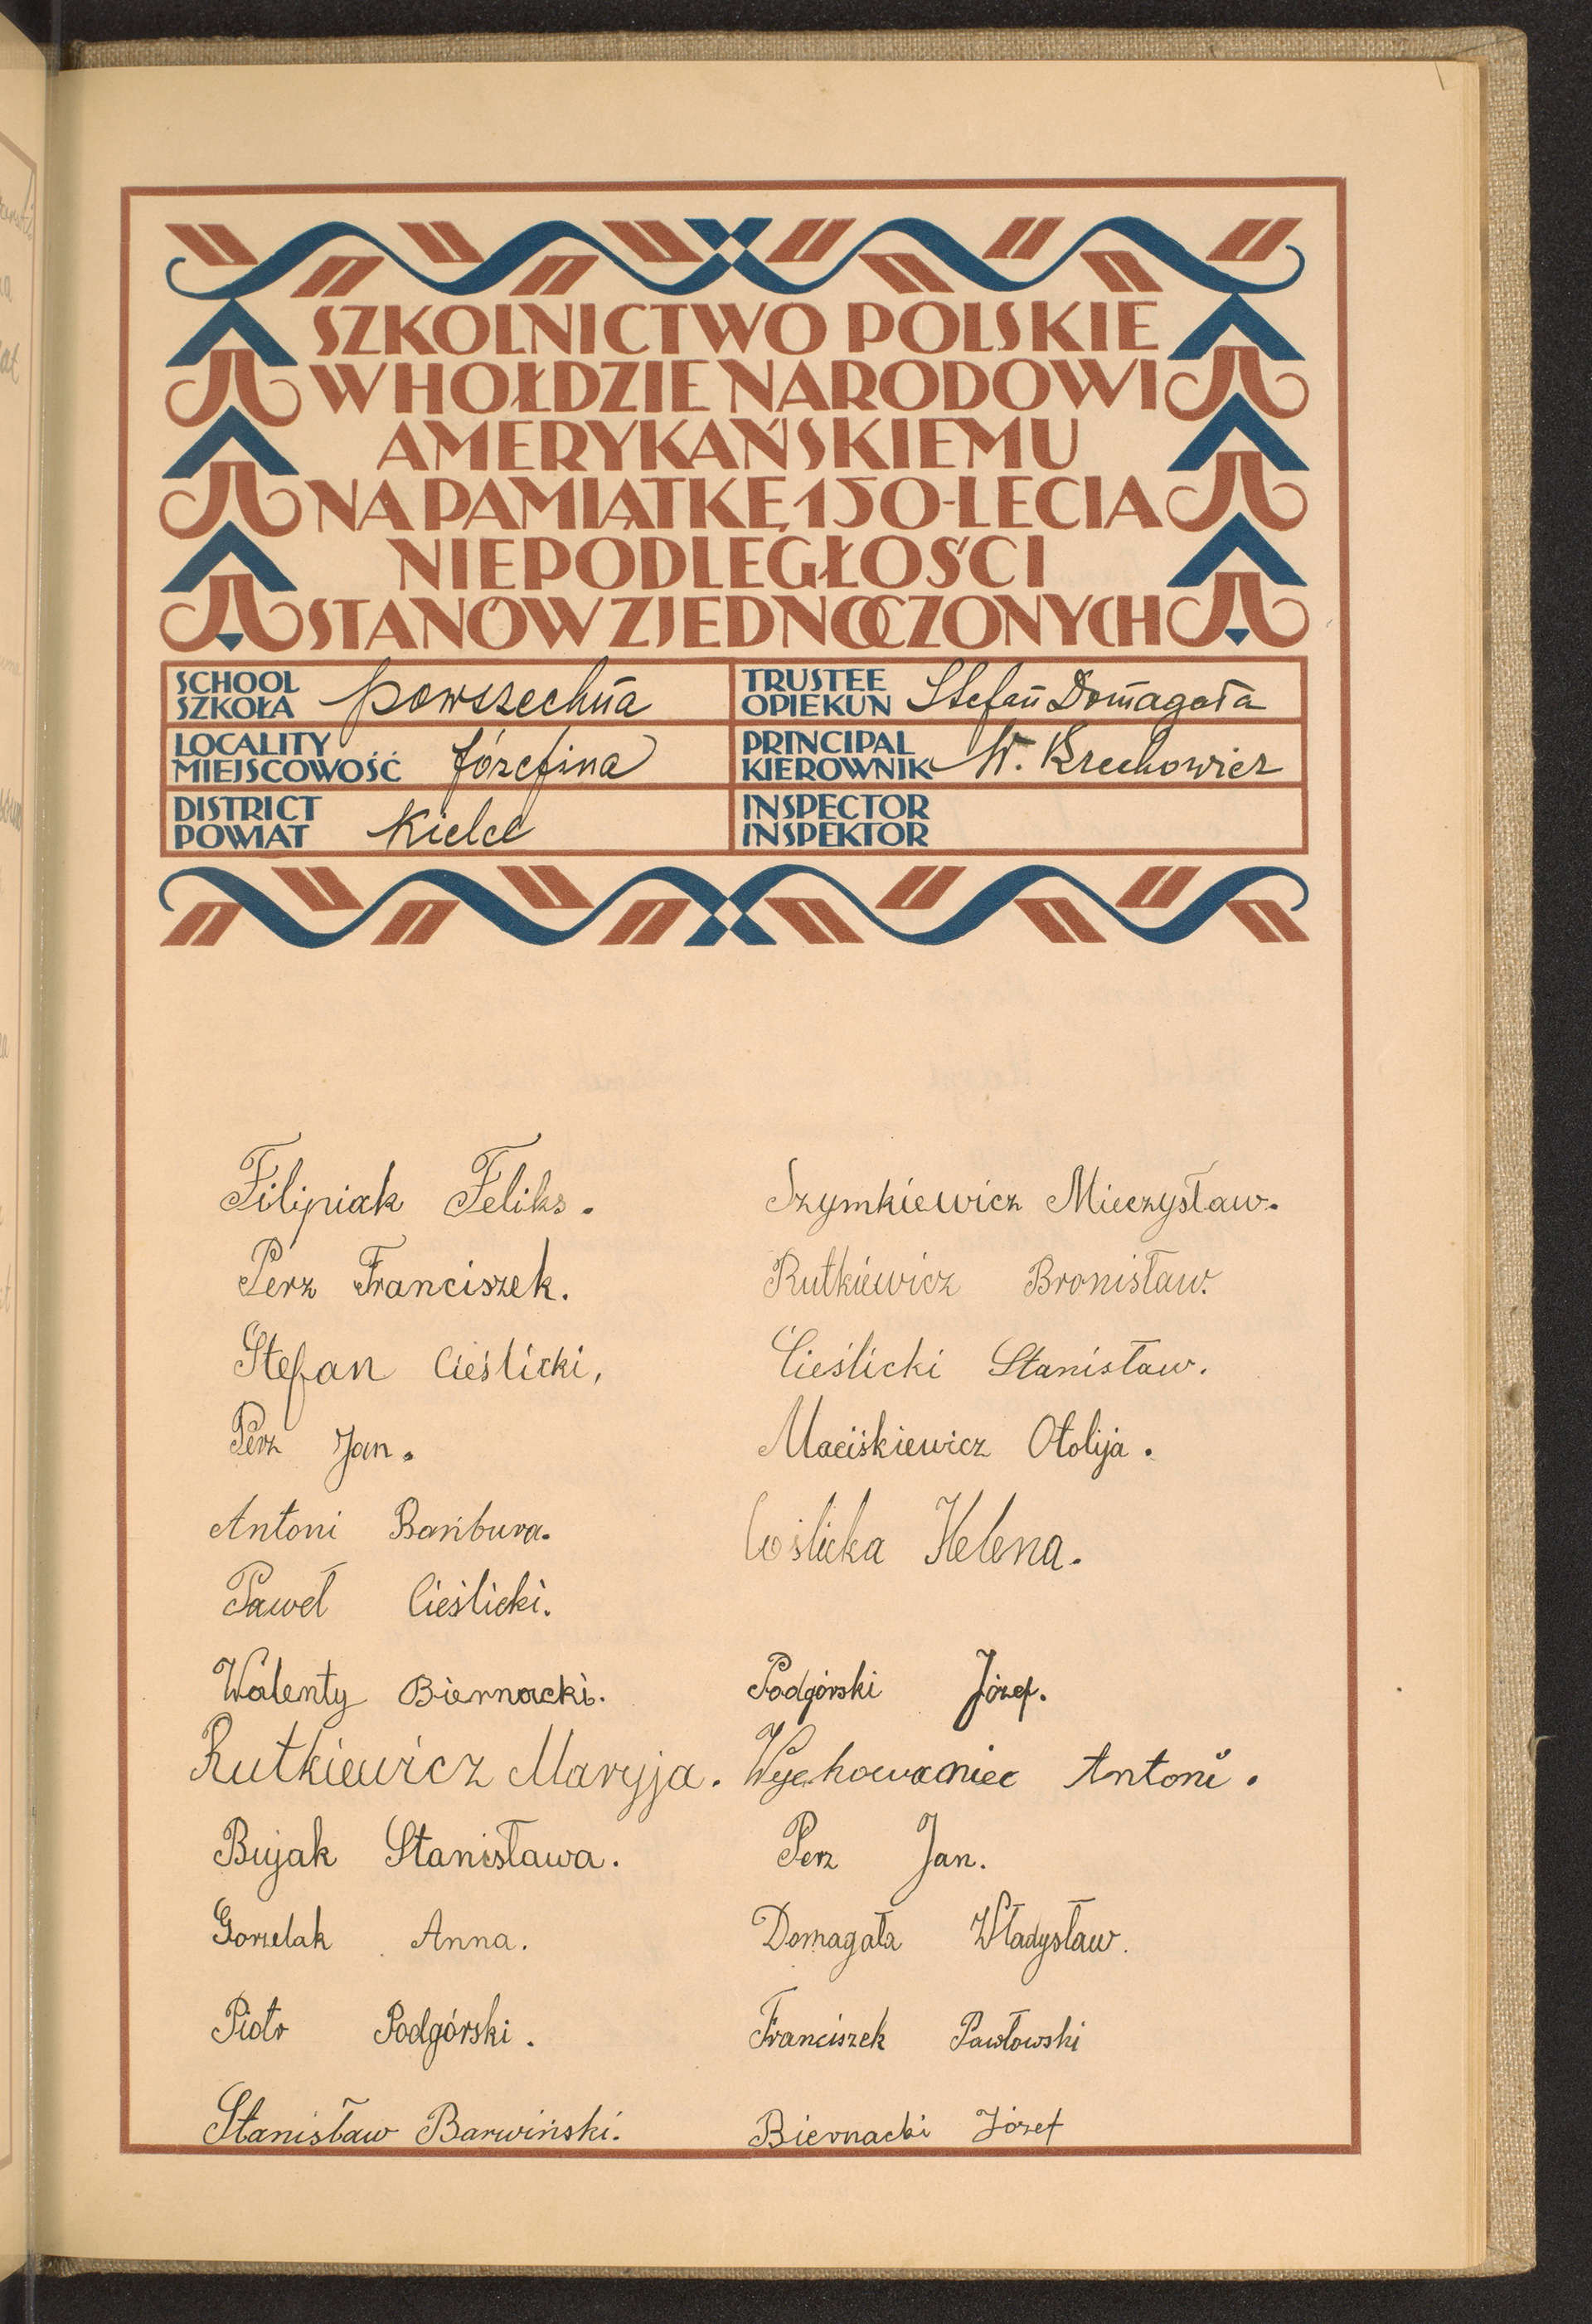 SZKOLNICTWO POLSKIE
W HOŁDZIE NARODOWI
AMERYKAŃSKIEMU
NA PAMIĄTKĘ 150-LECIA
NIEPODLEGŁOŚCI
STANÓW ZJEDNOCZONYCH
SCHOOL
SZKOŁA powszechna
TRUSTEE
OPIEKUN Stefan Domagała
LOCALITY
MIEJSCOWOŚĆ Józefina
PRINCIPAL
KIEROWNIK W. Brechowicz
DISTRICT
POWIAT Kielce
INSPECTOR
INSPEKTOR
Filipiak Feliks.
Perz Franciszek.
Stefan Cieślicki,
Perz Jan.
Antoni Bańbura.
Paweł Cieślicki.
Walenty Biernacki.
Rutkiewicz Maryja.
Bujak Stanisława.
Gorzelak Anna.
Piotr Podgórski.
Stanisław Barwiński.
Szymkiewicz Mieczysław.
Rutkiewicz Bronisław.
Cieślicki Stanisław.
Maciśkiewicz Otolija.
Helena.
Podgórski Józef.
Wychowaniec Antoni.
Perz Jan.
Domagała Władysław.
Franciszek Pawłowski
Biernacki Józef